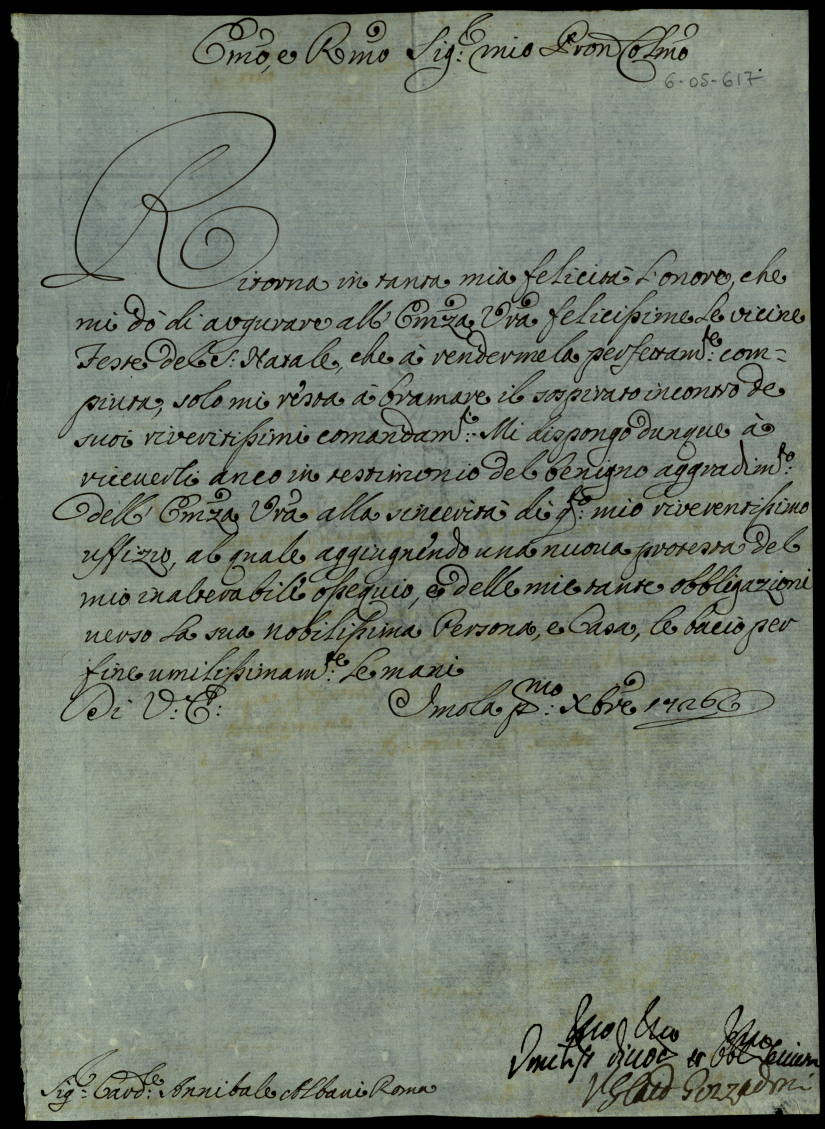 Em̃o, e Rm̃o Sig.re mio Pron Colm̃o
6-05-617
Ritorna in tanta mia felicità l'onore, che
mi dò di augurare all' Em̃za Vr̃a felicissime le vicine
Feste del S. Natale, che à rendermela perfettam.te com=
piuta, solo mi résta à bramare il sospirato incontro de
suoi riveritissimi comandam.ti Mi dispongo dunque à
riceverli anco in testimonio del benigno aggradim.to
dell' Em̃za Vr̃a alla sincerità di q.to mio riverentissimo
uffizio, al quale aggiugnendo una nuova protesta del
mio inalterabile ossequio, e delle mie tante obbligazioni
verso la sua nobilissima Persona, e Casa, le bacio per
fine umilissimam.te le mani
Di V: E: Imola p.mo Xbre 1726
Vmilis.mo et
Card Gozzadini
Sig.r Card.le Annibale Albani Roma